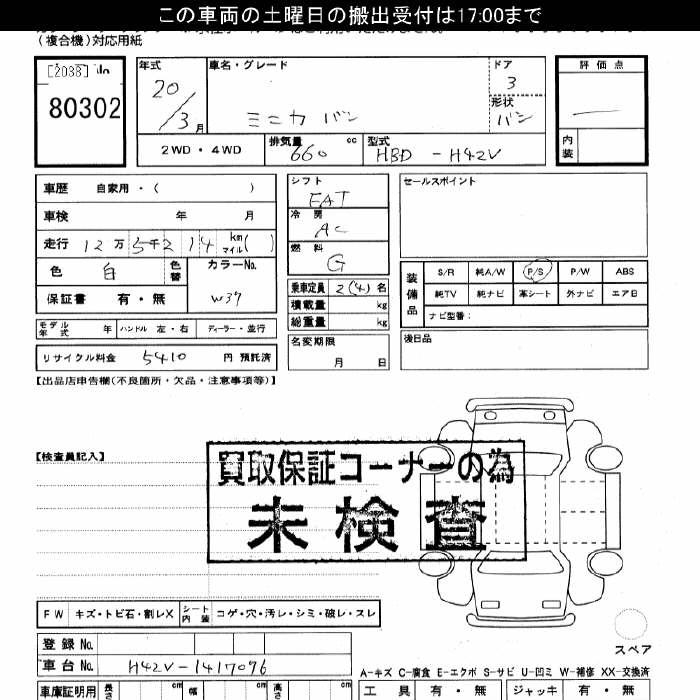 この車両の土曜日の搬出受付は17:00まで
(複合機)対応用紙
80302
年式 20/3月
車名・グレード ミニカ バン
ドア 3
形状 バン
評価点 —
内装
2WD・4WD
排気量 660 cc
型式 HBD - H42V
車歴 自家用・( )
車検 年 月
走行 12万5千214 km マイル( )
色 白 色替
カラーNo. W37
保証書 有・無
シフト FAT
冷房 AC
燃料 G
乗車定員 2(4)名
積載量 kg
総重量 kg
名変期限 月 日
セールスポイント
装備品
S/R 純A/W P/S P/W ABS
純TV 純ナビ 革シート 外ナビ エアB
ナビ型番:
後日品
モデル年式 年 ハンドル 左・右 ディーラー・並行
リサイクル料金 5410 円 預託済
【出品店申告欄(不良箇所・欠品・注意事項等)】
【検査員記入】
買取保証コーナーの為
未検査
FW キズ・トビ石・割レX シート内装 コゲ・穴・汚レ・シミ・破レ・スレ
スペア
登録No.
車台No. H42V-1417096
A-キズ C-腐食 E-エクボ S-サビ U-凹ミ W-補修 XX-交換済
車庫証明用 長さ cm 幅 cm 高さ cm
工具 有・無 ジャッキ 有・無